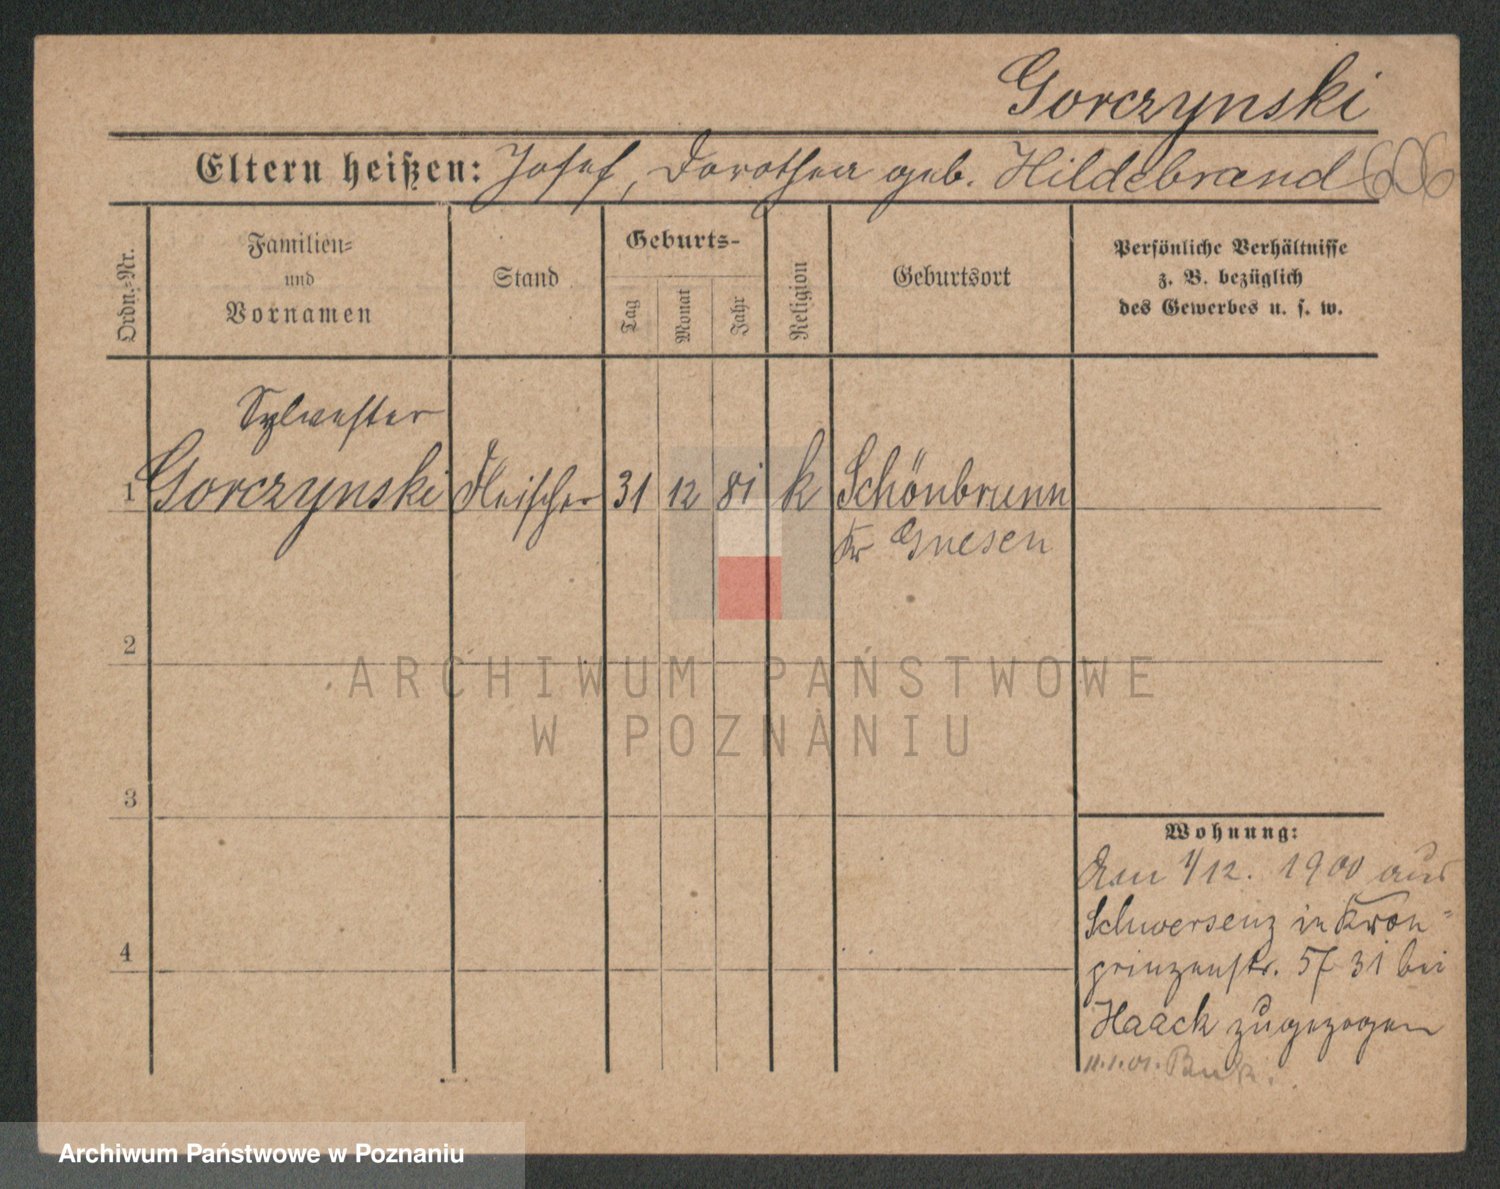 Gorczynski
Eltern heißen: Josef, Dorothea geb. Hildebrand 606
Ordn.-Nr.
Familien-
und
Vornamen
Stand
Geburts-
Tag
Monat
Jahr
Religion
Geburtsort
Persönliche Verhältnisse
z. B. bezüglich
des Gewerbes u. s. w.
Sylwester
1 Gorczynski Fleischer 31 12 81 k Schönbrunn
Kr Gnesen
2
ARCHIWUM PAŃSTWOWE
W POZNANIU
3
Wohnung:
Am 1/12. 1900 aus
Schwersenz in Kron-
4
prinzenstr. 57 31 bei
Haack zugezogen
11.1.01. Buk.
Archiwum Państwowe w Poznaniu